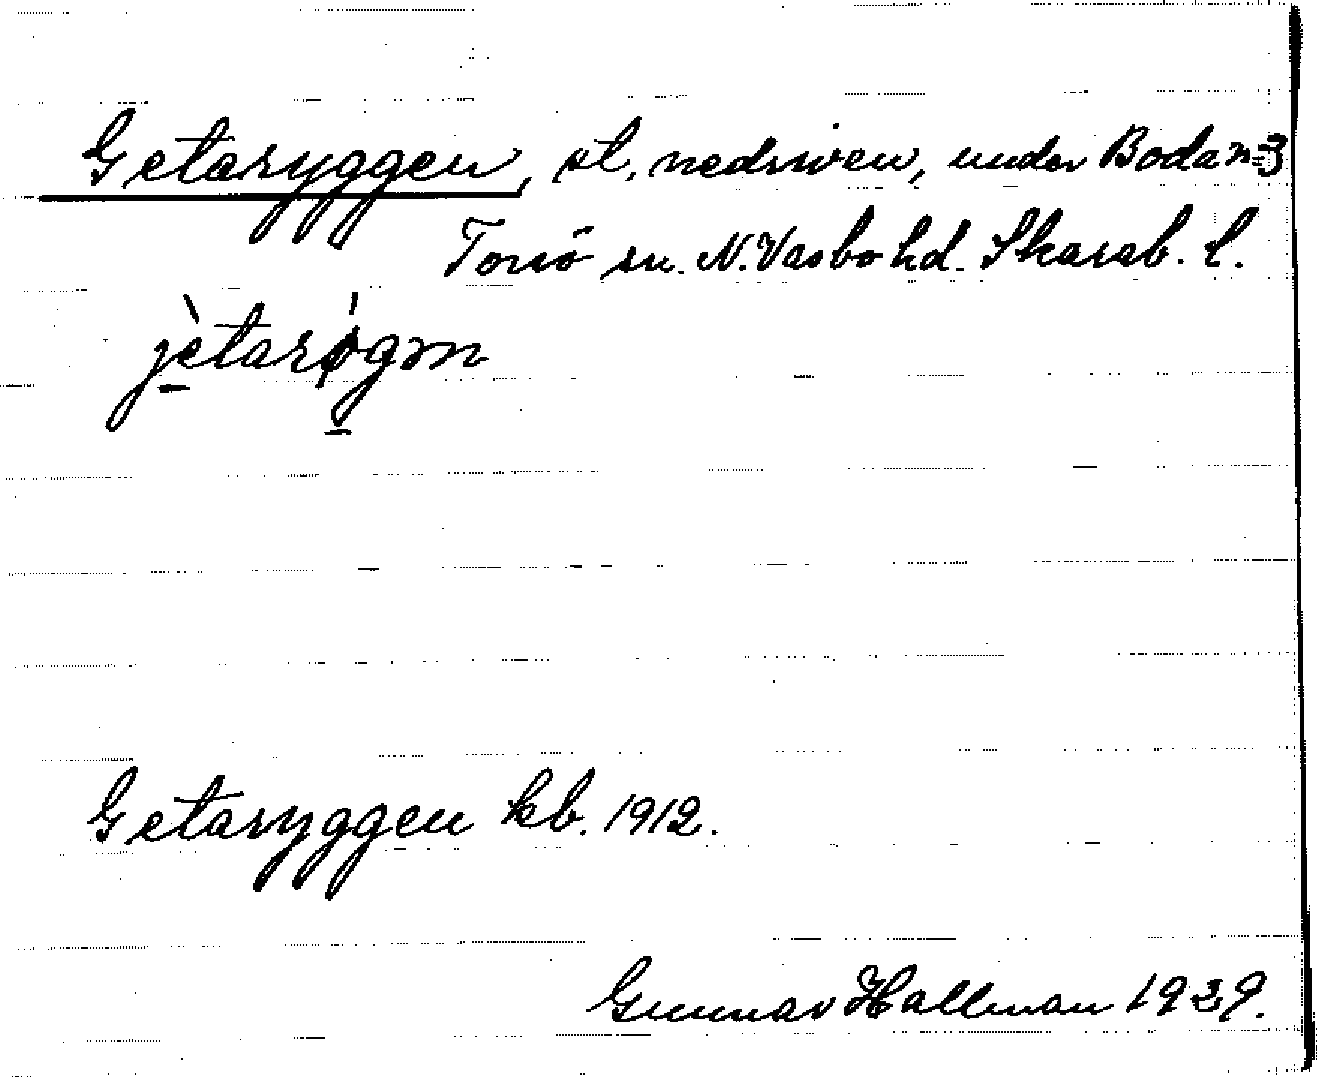 Getaryggen, st, nedriven, under Boda n=3
Torsö sn. N. Vadsbo hd. Skarab. l.
jètarǿgən
Getaryggen kb. 1912.
Gunnar Hallman 1929.